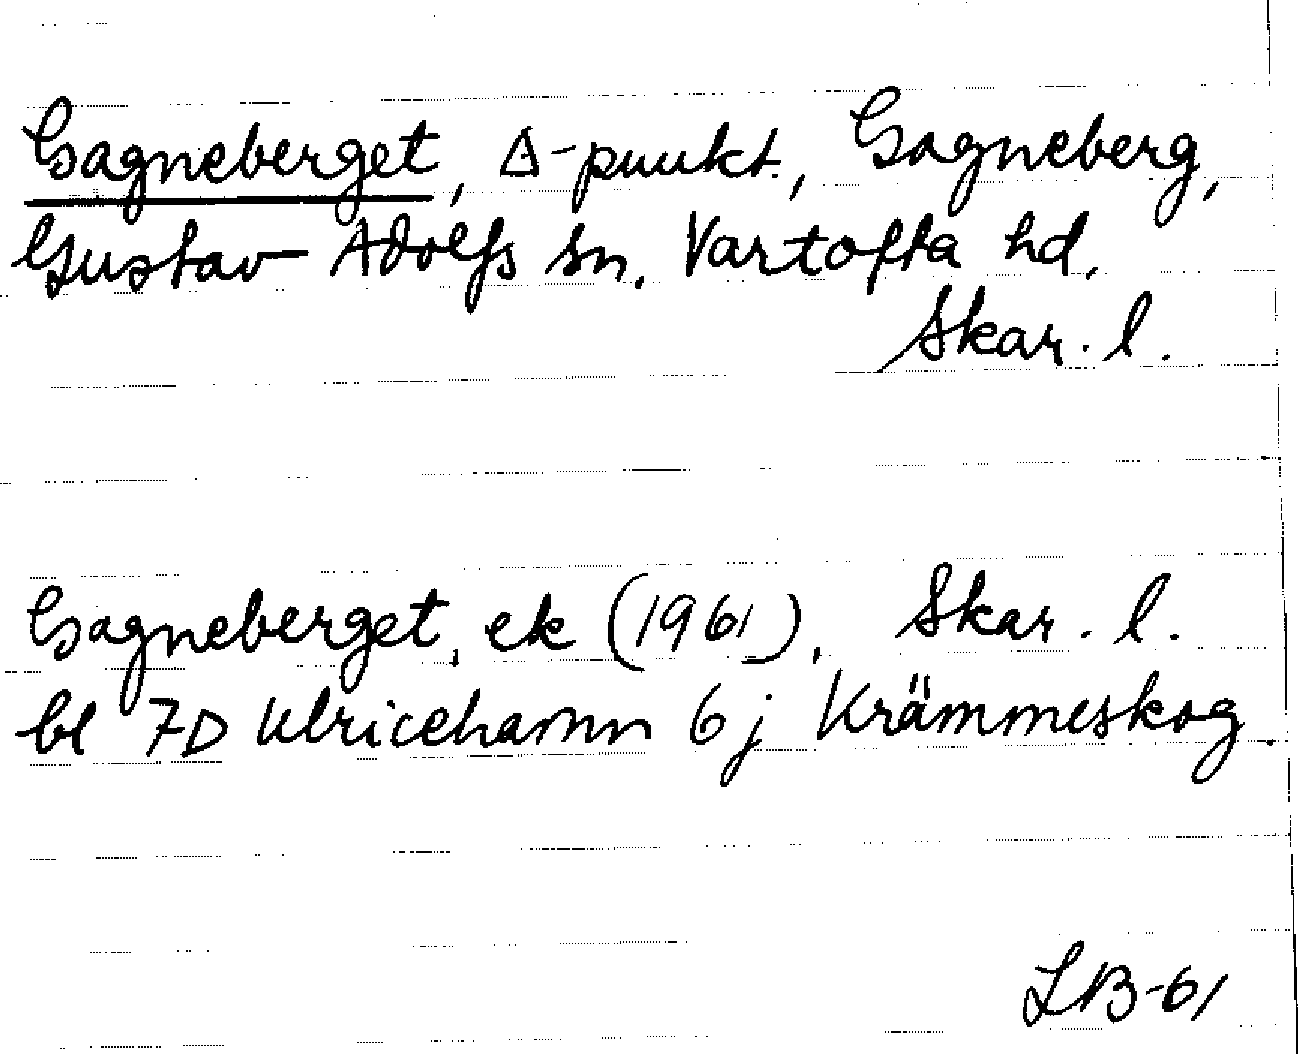 Gagneberget, Δ-punkt., Gagneberg,
Gustav Adolfs sn, Vartofta hd,
Skar. l.
Gagneberget, ek (1961), Skar. l.
bl 7D Ulricehamn 6j Krämmeskog.
LB-61